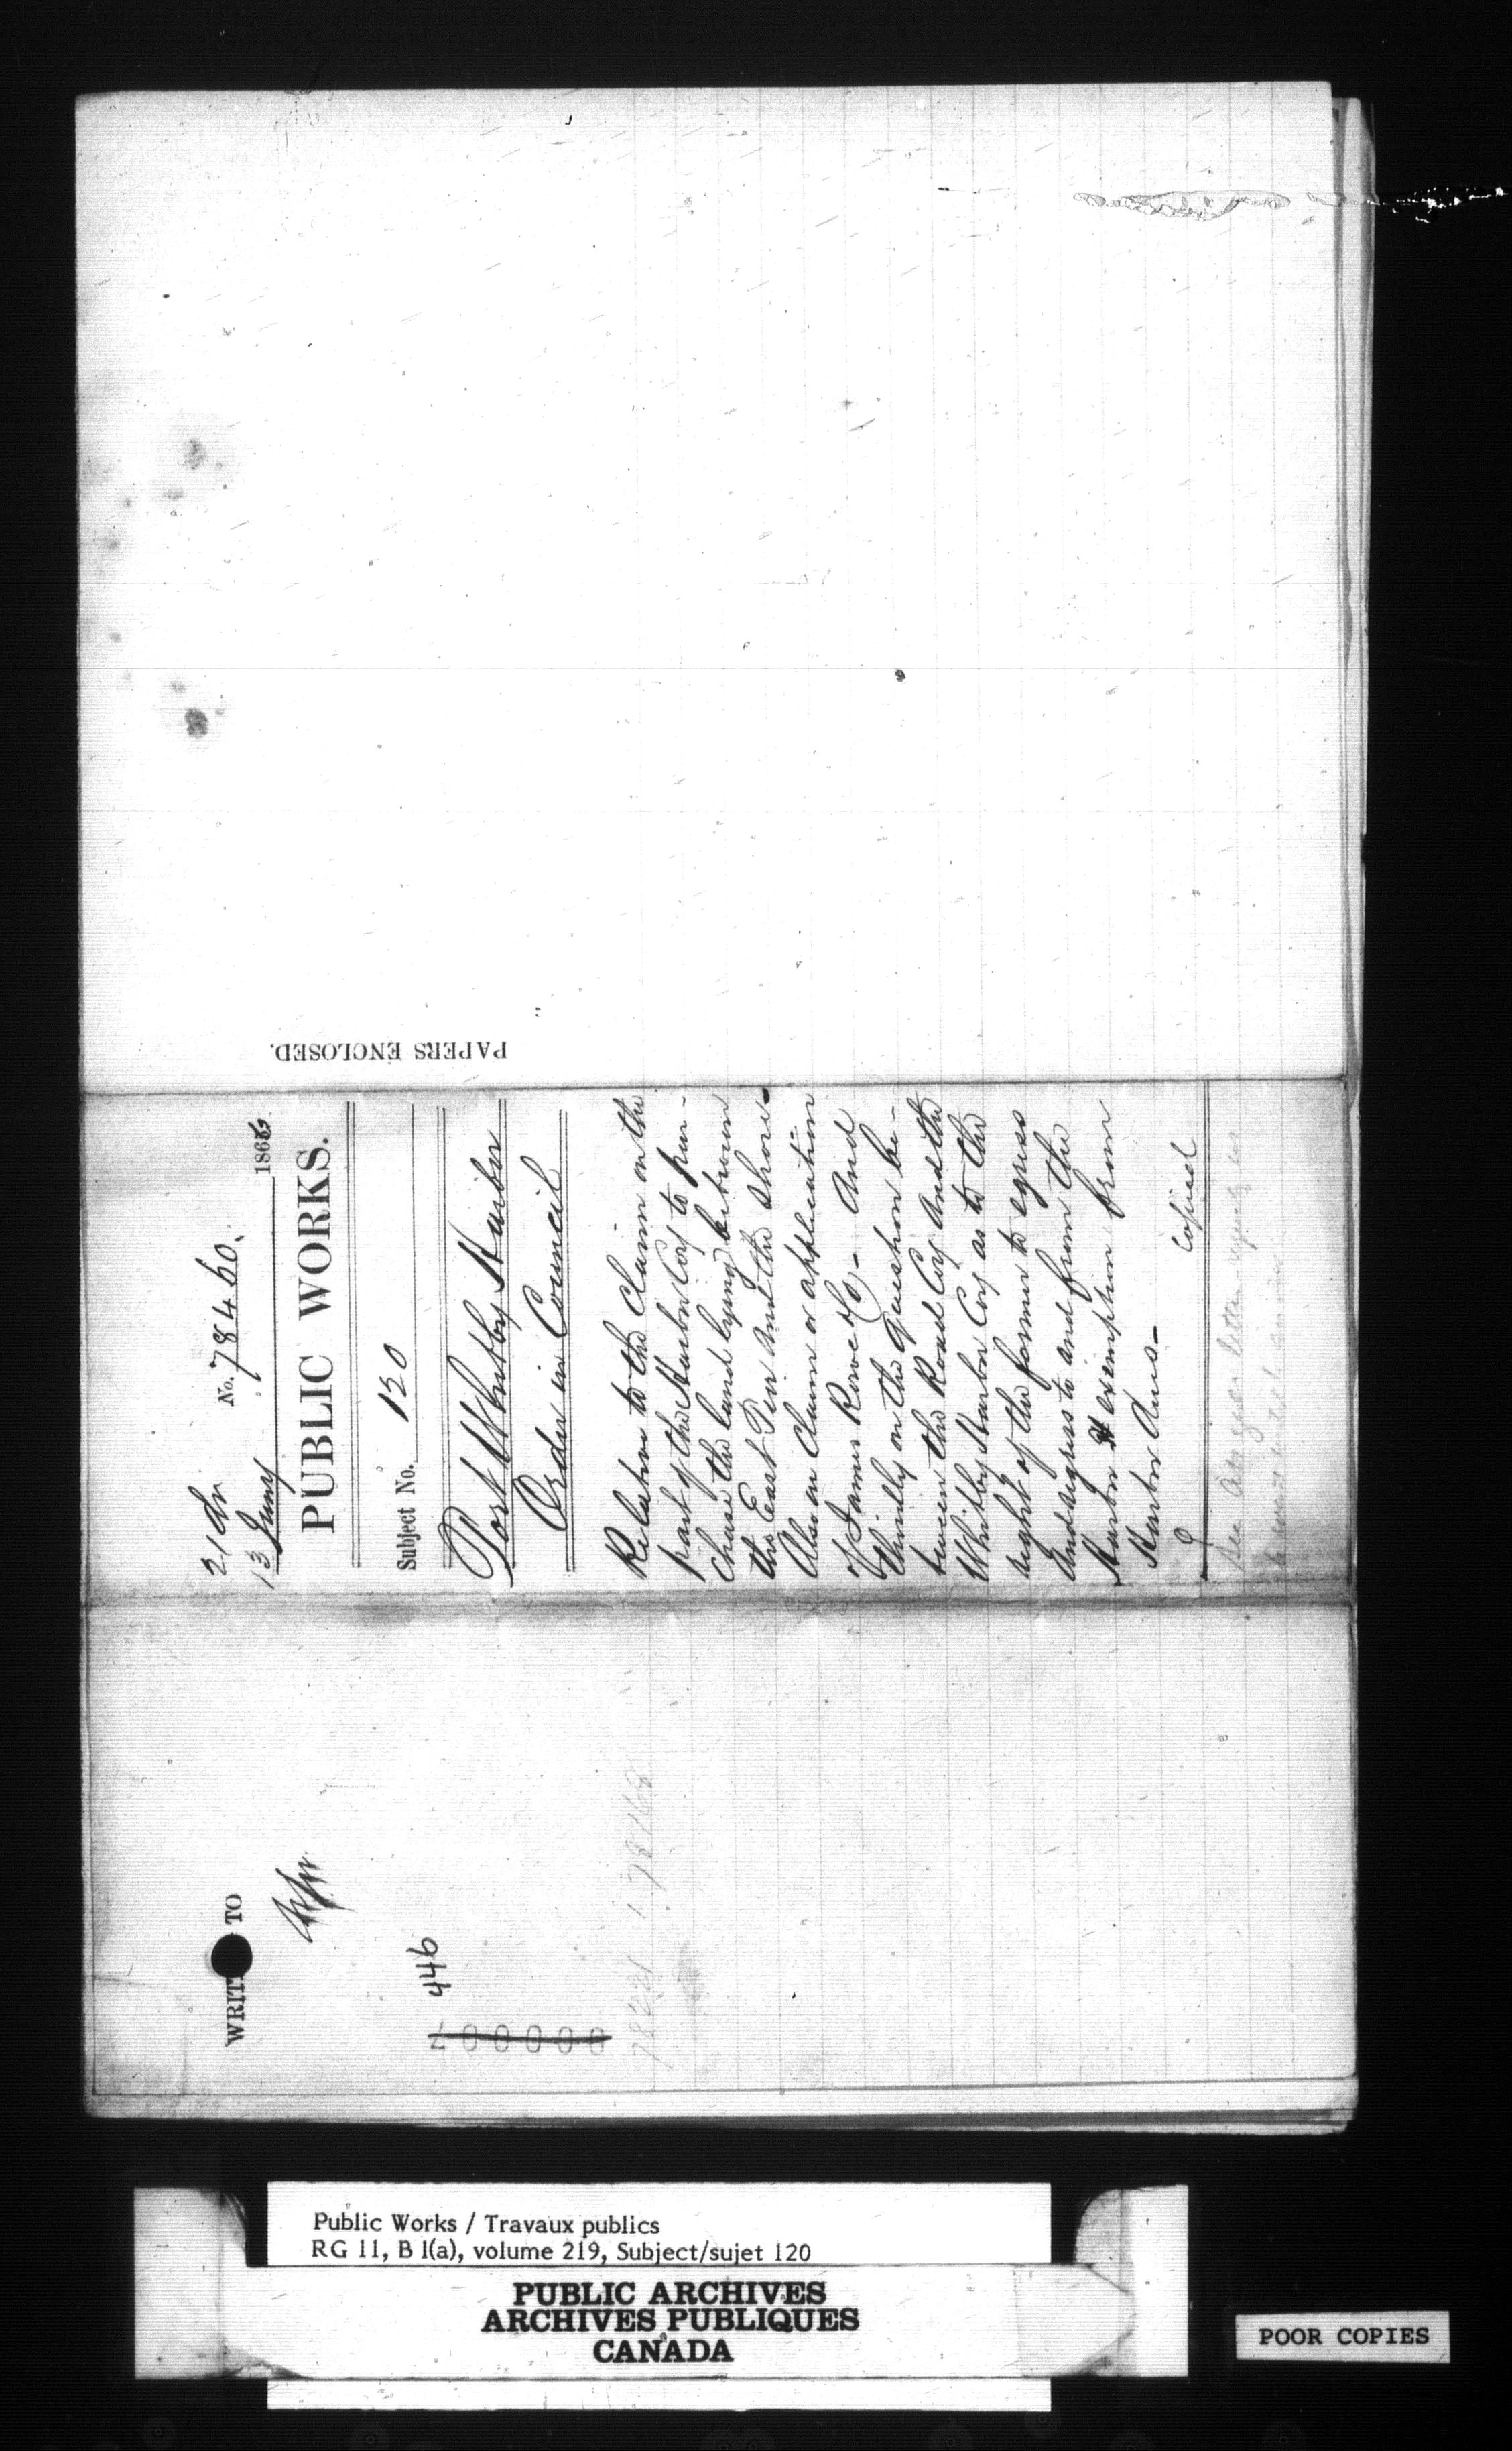 21 Or
No. 78460.
13 Jany 1866
PUBLIC WORKS.
Subject No. 120
Port Whitby Harbor
Order in Council
Relative to the Claim on the
part of the Harbor Coy to pur-
chase the land lying between
the East Pier and the Shore-
Also on Claim or application
of James Rowe & Co - And
thirdly on the question be-
tween the Road Coy and the
Whitby Harbor Coy as to the
right of the former to egress
and regress to and from the
Harbor & exemption from
Harbor dues -
Copied
See letter
PAPERS ENCLOSED.
WRITE TO
446
78221 1 78168
Public Works / Travaux publics
RG 11, B 1(a), volume 219, Subject/sujet 120
PUBLIC ARCHIVES
ARCHIVES PUBLIQUES
CANADA
POOR COPIES